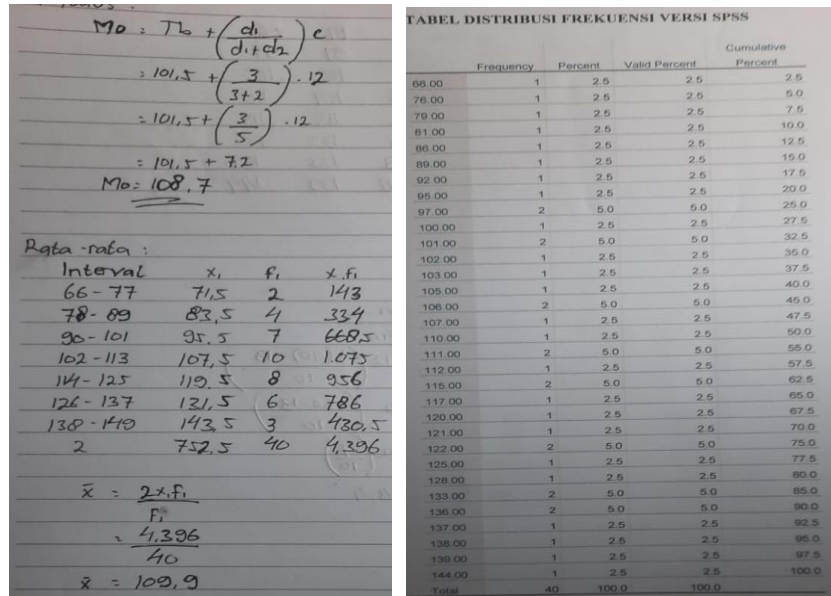 Mo = Tb + (d1 / d1+d2) c
= 101,5 + (3 / 3+2) . 12
= 101,5 + (3 / 5) . 12
= 101,5 + 7,2
Mo = 108,7
Rata-rata :
Interval x₁ f₁ x.f₁
66 - 77 71,5 2 143
78 - 89 83,5 4 334
90 - 101 95,5 7 668,5
102 - 113 107,5 10 1.075
114 - 125 119,5 8 956
126 - 137 131,5 6 786
138 - 149 143,5 3 430,5
2 752,5 40 4.396
x̄ = 2x.f₁ / f₁
= 4.396 / 40
x̄ = 109,9
TABEL DISTRIBUSI FREKUENSI VERSI SPSS
Frequency Percent Valid Percent Cumulative Percent
66.00 1 2.5 2.5 2.5
76.00 1 2.5 2.5 5.0
79.00 1 2.5 2.5 7.5
81.00 1 2.5 2.5 10.0
86.00 1 2.5 2.5 12.5
89.00 1 2.5 2.5 15.0
92.00 1 2.5 2.5 17.5
95.00 1 2.5 2.5 20.0
97.00 2 5.0 5.0 25.0
100.00 1 2.5 2.5 27.5
101.00 2 5.0 5.0 32.5
102.00 1 2.5 2.5 35.0
103.00 1 2.5 2.5 37.5
105.00 1 2.5 2.5 40.0
106.00 2 5.0 5.0 45.0
107.00 1 2.5 2.5 47.5
110.00 1 2.5 2.5 50.0
111.00 2 5.0 5.0 55.0
112.00 1 2.5 2.5 57.5
115.00 2 5.0 5.0 62.5
117.00 1 2.5 2.5 65.0
120.00 1 2.5 2.5 67.5
121.00 1 2.5 2.5 70.0
122.00 2 5.0 5.0 75.0
125.00 1 2.5 2.5 77.5
128.00 1 2.5 2.5 80.0
133.00 2 5.0 5.0 85.0
136.00 2 5.0 5.0 90.0
137.00 1 2.5 2.5 92.5
138.00 1 2.5 2.5 95.0
139.00 1 2.5 2.5 97.5
144.00 1 2.5 2.5 100.0
Total 40 100.0 100.0